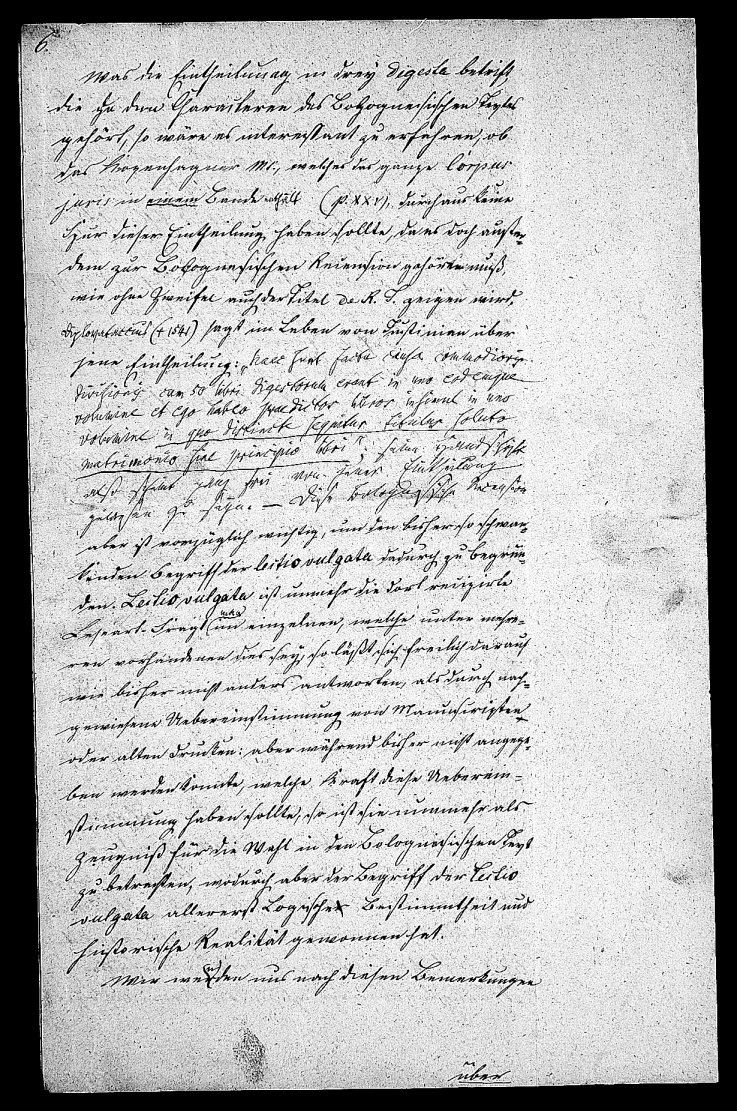 6.
Was die Eintheilung in drey Digesta betrift,
die zu den Characteren des Bolognesischen Textes
gehört, so wäre es interessant zu erfahren, ob
das Kopenhagner Ms., welches das ganze Corpus
juris in einem Bande enthält (p. XXV), durchaus keine
Spur dieser Eintheilung haben sollte, da es doch ausser-
dem zur Bolognesischen Recension gehören muß,
wie ohne Zweifel auch der Titel de R. J. zeigen wird.
Diplovatccius († 1541) sagt im Leben von Justinian über
jene Eintheilung: „haec fuit facta causa commodioris
divisionis cum 50 libri digestorum erant in uno eodemque
volumine et ego habeo praedictos libros insimul in uno
volumine in quo distincte sequitur titulus soluto
matrimonio sine principio libri"; seine Handschrift
also scheint ganz frei von jener Eintheilung
gewesen zu seyn. — Diese Bolognesische Recension
aber ist vorzüglich wichtig, um den bisher so schwan-
kenden Begriff der lectio vulgata dadurch zu begrün-
den. Lectio vulgata ist nunmehr die dort recipirte
Leseart. Fragt man im einzelnen, welche unter mehre-
ren vorhandenen dies sey, so läßt sich freilich darauf
wie bisher nicht anders antworten, als durch nach-
gewiesene Uebereinstimmung von Manuscripten
oder alten Drucken: aber während bisher nicht angege-
ben werden konnte, welche Kraft diese Ueberein-
stimmung haben sollte, so ist sie nunmehr als
Zeugniß für die Wahl in den Bolognesischen Text
zu betrachten, wodurch aber der Begriff der Lectio
vulgata allererst Logische Bestimmtheit und
historische Realität gewonnen hat.
Wir werden uns nach diesen Bemerkungen
über